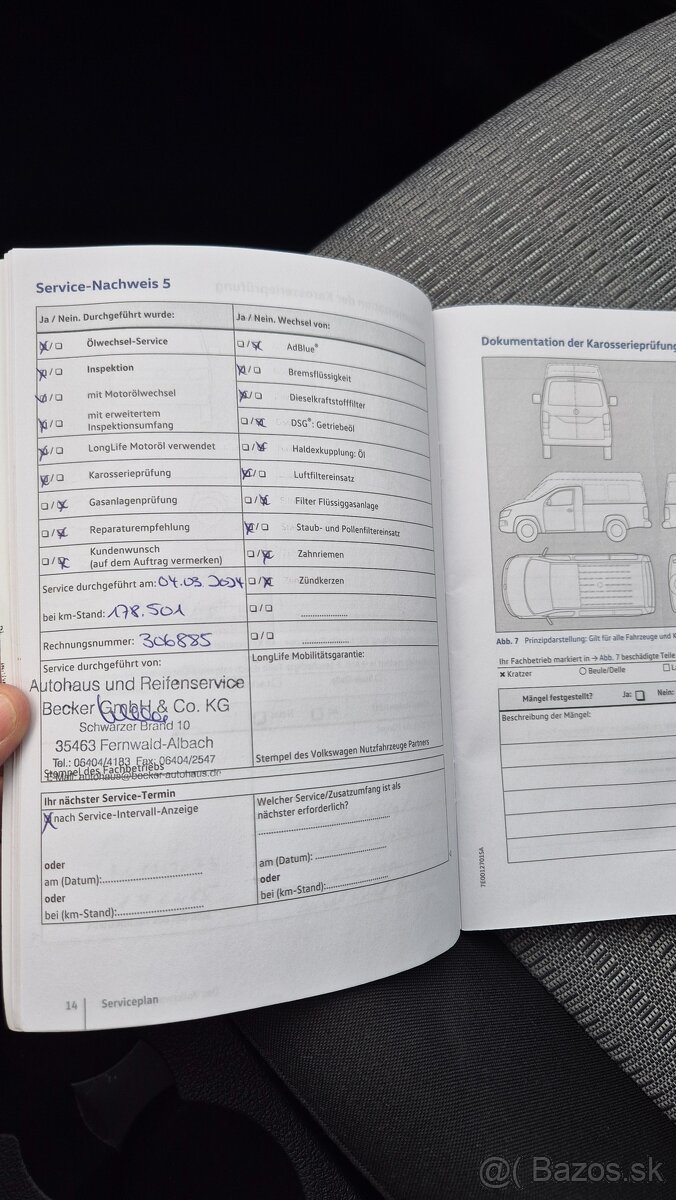 Service-Nachweis 5
Ja / Nein. Durchgeführt wurde:
Ölwechsel-Service
Inspektion
mit Motorölwechsel
mit erweitertem
Inspektionsumfang
LongLife Motoröl verwendet
Karosserieprüfung
Gasanlagenprüfung
Reparaturempfehlung
Kundenwunsch
(auf dem Auftrag vermerken)
Service durchgeführt am: 04.03.2024
bei km-Stand: 178.501
Rechnungsnummer: 306885
Service durchgeführt von:
Autohaus und Reifenservice
Becker GmbH & Co. KG
Schwarzer Brand 10
35463 Fernwald-Albach
Tel.: 06404/4183 Fax: 06404/2547
Stempel des Fachbetriebs
E-Mail: autohaus@becker-autohaus.de
Ja / Nein. Wechsel von:
AdBlue®
Bremsflüssigkeit
Dieselkraftstofffilter
DSG®: Getriebeöl
Haldexkupplung: Öl
Luftfiltereinsatz
Filter Flüssiggasanlage
Staub- und Pollenfiltereinsatz
Zahnriemen
Zündkerzen
LongLife Mobilitätsgarantie:
Stempel des Volkswagen Nutzfahrzeuge Partners
Ihr nächster Service-Termin
nach Service-Intervall-Anzeige
oder
am (Datum):
oder
bei (km-Stand):
Welcher Service/Zusatzumfang ist als
nächster erforderlich?
am (Datum):
oder
bei (km-Stand):
14 Serviceplan
Dokumentation der Karosserieprüfung
Abb. 7 Prinzipdarstellung: Gilt für alle Fahrzeuge und
Ihr Fachbetrieb markiert in → Abb. 7 beschädigte Teile
x Kratzer O Beule/Delle
Mängel festgestellt? Ja: Nein:
Beschreibung der Mängel:
7E0012701SA
@( Bazos.sk